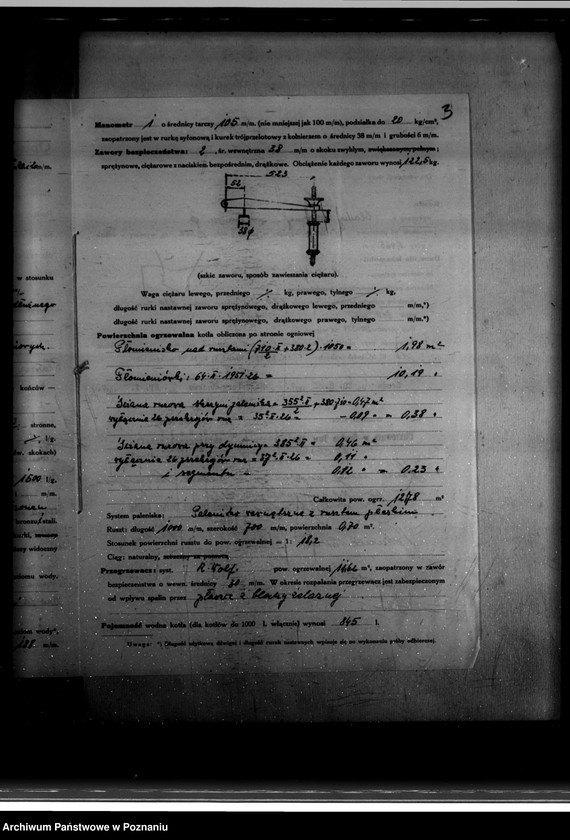 3
Manometr 1 o średnicy tarczy 105 m/m. (nie mniejszej jak 100 m/m), podziałka do 20 kg/cm²,
zaopatrzony jest w rurkę syfonową i kurek trójprzelotowy z kołnierzem o średnicy 38 m/m i grubości 6 m/m.
Zawory bezpieczeństwa: 2, śr. wewnętrzna 38 m/m o skoku zwykłym, zwiększonym, pełnym;
sprężynowe, ciężarowe z naciskiem bezpośrednim, drążkowe. Obciążenie każdego zaworu wynosi 122,5 kg.
523
52
(szkic zaworu, sposób zawieszania ciężaru).
Waga ciężaru lewego, przedniego kg, prawego, tylnego kg,
długość rurki nastawnej zaworu sprężynowego, drążkowego lewego, przedniego m/m,*)
długość rurki nastawnej zaworu sprężynowego, drążkowego prawego, tylnego m/m.*)
Powierzchnia ogrzewalna kotła obliczona po stronie ogniowej
Płomienisko nad rusztami 1050 = 1,98 m²
Płomieniówki: 64·π·1951·26 = 10,19 "
Ściana rurowa = 0,47 m²
35²·π·26 = - 0,09 " = 0,38 "
Ściana rurowa przy dymnicy = 385²·π = 0,46 m²
= 37²·π·26 = 0,11 "
i segmentu = 0,12 " = 0,23 "
Całkowita pow. ogrz. 12,78 m²
System paleniska: Palenisko wewnętrzne z rusztem płaskim
Ruszt: długość 1000 m/m, szerokość 700 m/m, powierzchnia 0,70 m².
Stosunek powierzchni rusztu do pow. ogrzewalnej = 1: 18,2
Ciąg: naturalny,
Przegrzewacz: syst. R. Wolf pow. ogrzewalnej m², zaopatrzony w zawór
bezpieczeństwa o wewn. średnicy m/m. W okresie rozpalania przegrzewacz jest zabezpieczonym
od wpływu spalin przez płaszcz z blachy żelaznej
Pojemność wodna kotła (dla kotłów do 1000 l. włącznie) wynosi 845 l.
Uwaga: *) Długość użytkową dźwigni i długość rurek nastawnych wpisuje się po wykonaniu próby odbiorczej.
w stosunku
końców —
stronne,
l/g.
ów. skokach)
1500 l/g.
m/m.
stali.
zony widoczny
ziomu wody.
m/m.
Archiwum Państwowe w Poznaniu